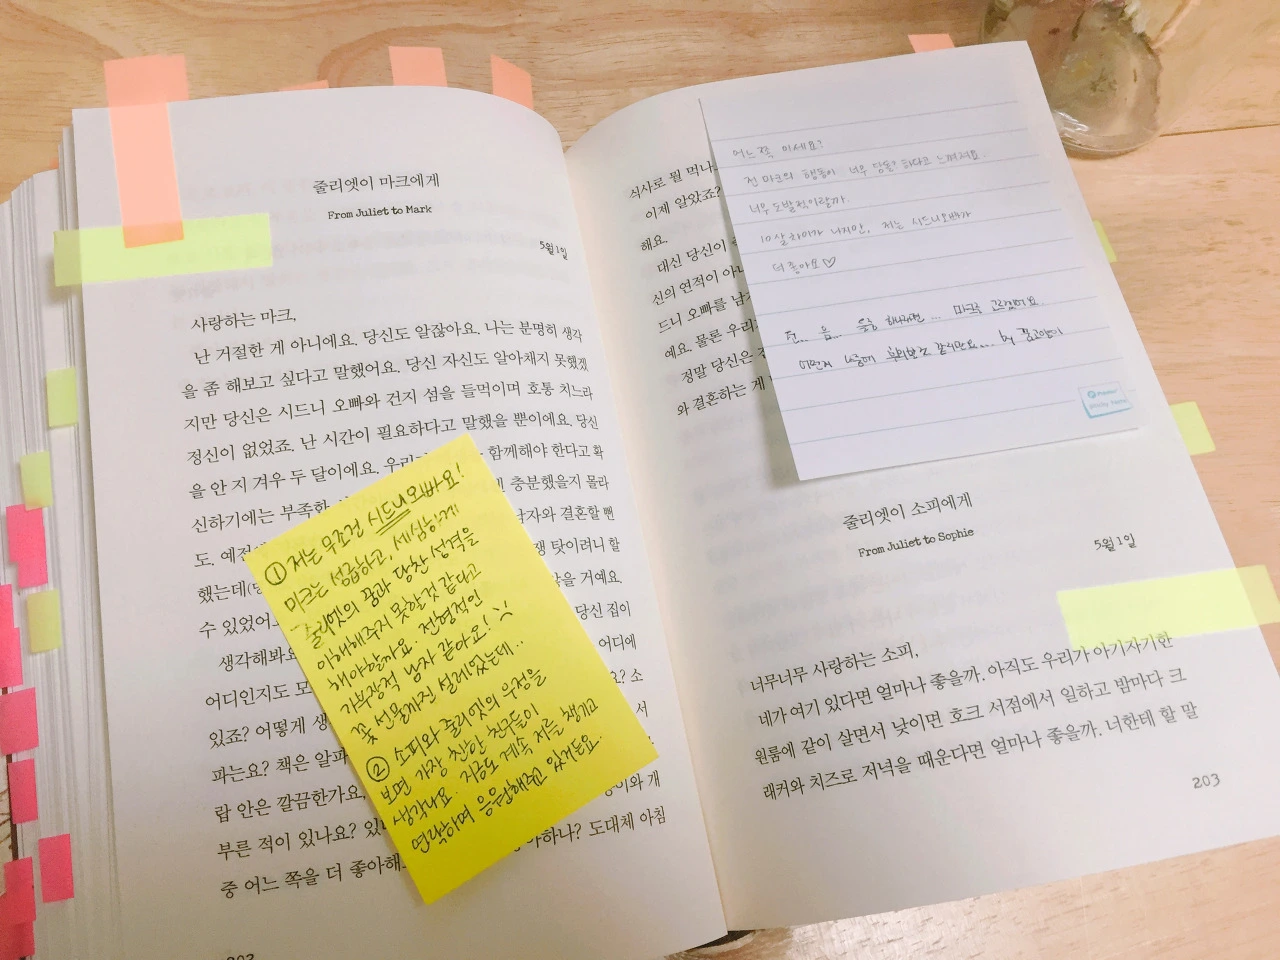 줄리엣이 마크에게
From Juliet to Mark
5월 1일
사랑하는 마크,
난 거절한 게 아니에요. 당신도 알잖아요. 나는 분명히 생각
을 좀 해보고 싶다고 말했어요. 당신 자신도 알아채지 못했겠
지만 당신은 시드니 오빠와 건지 섬을 들먹이며 호통 치느라
정신이 없었죠. 난 시간이 필요하다고 말했을 뿐이에요. 당신
을 안 지 겨우 두 달이에요. 함께해야 한다고 확
신하기에는 부족한 충분했을지 몰라
도. 남자와 결혼할 뻔
했는데 탓이려니 할
수 있었어 거예요.
생각해봐요 당신 집이
어디인지도 모 어디에
있죠? 어떻게 생 요? 소
파는요? 책은 알파 서
랍 안은 깔끔한가요, 와 개
부른 적이 있나요? 있 하나? 도대체 아침
중 어느 쪽을 더 좋아해
① 저는 무조건 시드니오빠요!
마크는 성급하고, 세심하게
줄리엣의 꿈과 당찬 성격을
이해해주지 못할것 같다고
해야할까요. 전형적인
가부장적 남자 같아요!
꽃 선물까진 설레였는데..
② 소피와 줄리엣의 우정을
보면 가장 친한 친구들이
생각나요. 지금도 계속 저를 챙기고
연락하며 응원해주고 있거든요.
식사로 뭘 먹나
이제 알았죠?
해요.
대신 당신이
신의 연적이 아니
드니 오빠를 남
예요. 물론 우리
정말 당신은
와 결혼하는 게
어느 쪽 이세요?
전 마크의 행동이 너무 당돌? 하다고 느껴져요.
너무 도발적이랄까.
10살 차이가 나지만, 저는 시드니오빠가
더 좋아요♡
전... 음... 하나라면... 마크를 고르겠어요.
어쩐지 나중에 후회할 것 같지만요... by
줄리엣이 소피에게
From Juliet to Sophie
5월 1일
너무너무 사랑하는 소피,
네가 여기 있다면 얼마나 좋을까. 아직도 우리가 아기자기한
원룸에 같이 살면서 낮이면 호크 서점에서 일하고 밤마다 크
래커와 치즈로 저녁을 때운다면 얼마나 좋을까. 너한테 할 말
203